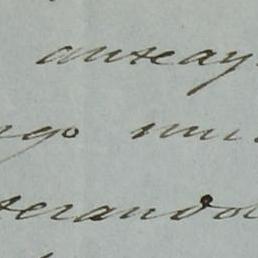 anteay
ngo mu
terandol